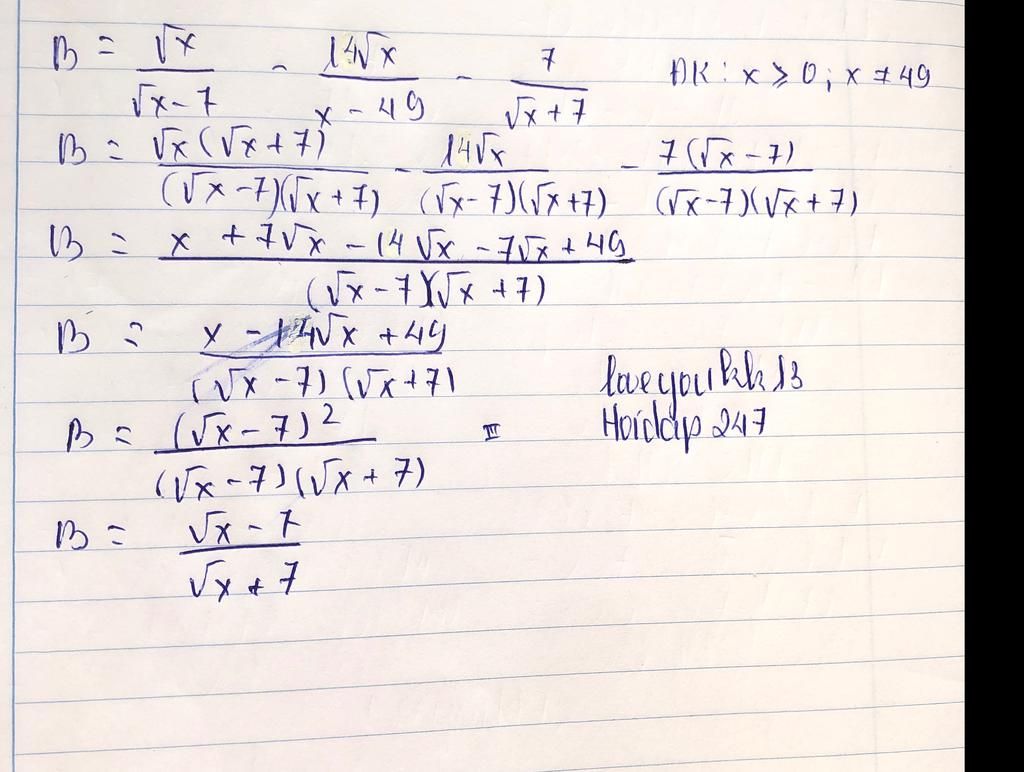 B = √x/(√x - 7) - 14√x/(x - 49) - 7/(√x + 7) ĐK: x ≥ 0; x ≠ 49
B = √x(√x + 7)/((√x - 7)(√x + 7)) - 14√x/((√x - 7)(√x + 7)) - 7(√x - 7)/((√x - 7)(√x + 7))
B = (x + 7√x - 14√x - 7√x + 49)/((√x - 7)(√x + 7))
B = (x - 14√x + 49)/((√x - 7)(√x + 7))
loveyoukk13
B = (√x - 7)²/((√x - 7)(√x + 7))
Hoidap247
B = (√x - 7)/(√x + 7)